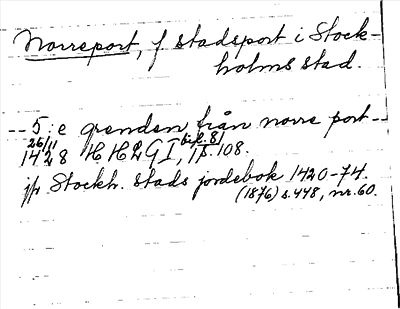 Norreport, f stadsport i Stock-
holms stad.
-- 5:e grenden från norre port --
26/11 1428 HH2GI, bil. 8, s. 108.
jfr Stockh. stads jordebok 1420-74.
(1876) s. 448, nr. 60.